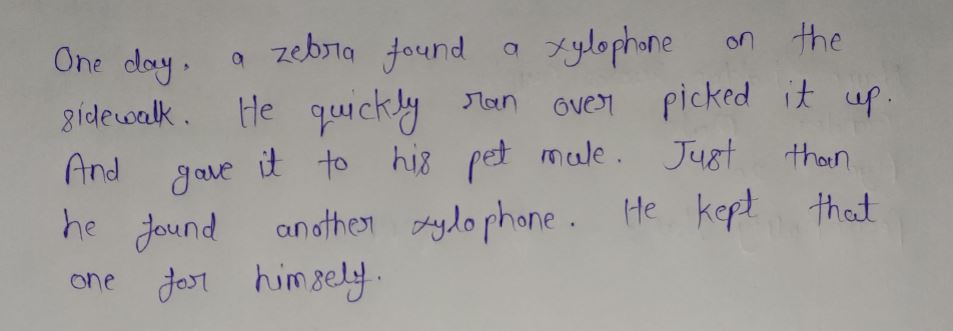 One day, a zebra found a xylophone on the
sidewalk. He quickly ran over picked it up.
And gave it to his pet mule. Just than
he found another xylophone. He kept that
one for himself.